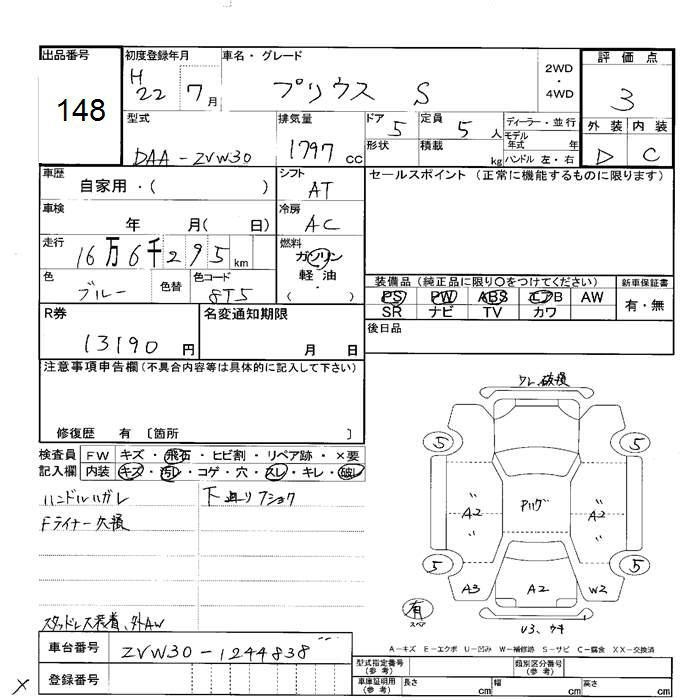 出品番号
148
初度登録年月
H 22 7月
車名・グレード
プリウス S
2WD
・
4WD
評価点
3
外装 内装
D C
型式
DAA-ZVW30
排気量
1797 cc
ドア 5
形状
定員 5 人
積載 kg
ディーラー・並行
モデル年式 年
ハンドル 左・右
車歴
自家用・( )
シフト
AT
車検
年 月( 日)
冷房
AC
走行
16万6千295 km
燃料
ガソリン
軽油
( )
色
ブルー
色替
色コード
8T5
セールスポイント(正常に機能するものに限ります)
装備品(純正品に限り○をつけてください)
PS PW ABS エアB AW
SR ナビ TV カワ
新車保証書
有・無
後日品
R券
13190 円
名変通知期限
月 日
注意事項申告欄(不具合内容等は具体的に記入して下さい)
修復歴 有 〔箇所 〕
検査員記入欄
FW キズ・飛石・ヒビ割・リペア跡・×要
内装 キズ・汚レ・コゲ・穴・スレ・キレ・破レ
ハンドルハガレ
Fライナー欠損
下廻りフショク
スタッドレス装着、外AW
ワレ 破損
5
5
5
5
〃
A2
〃
〃
A2
〃
Pハゲ
A3
A2
W2
有
スペア
U3、ウキ
A-キズ E-エクボ U-凹み W-補修跡 S-サビ C-腐食 XX-交換済
車台番号
ZVW30-1244838
登録番号
型式指定番号(参考)
類別区分番号(参考)
車庫証明用(参考)
長さ cm
幅 cm
高さ cm
×